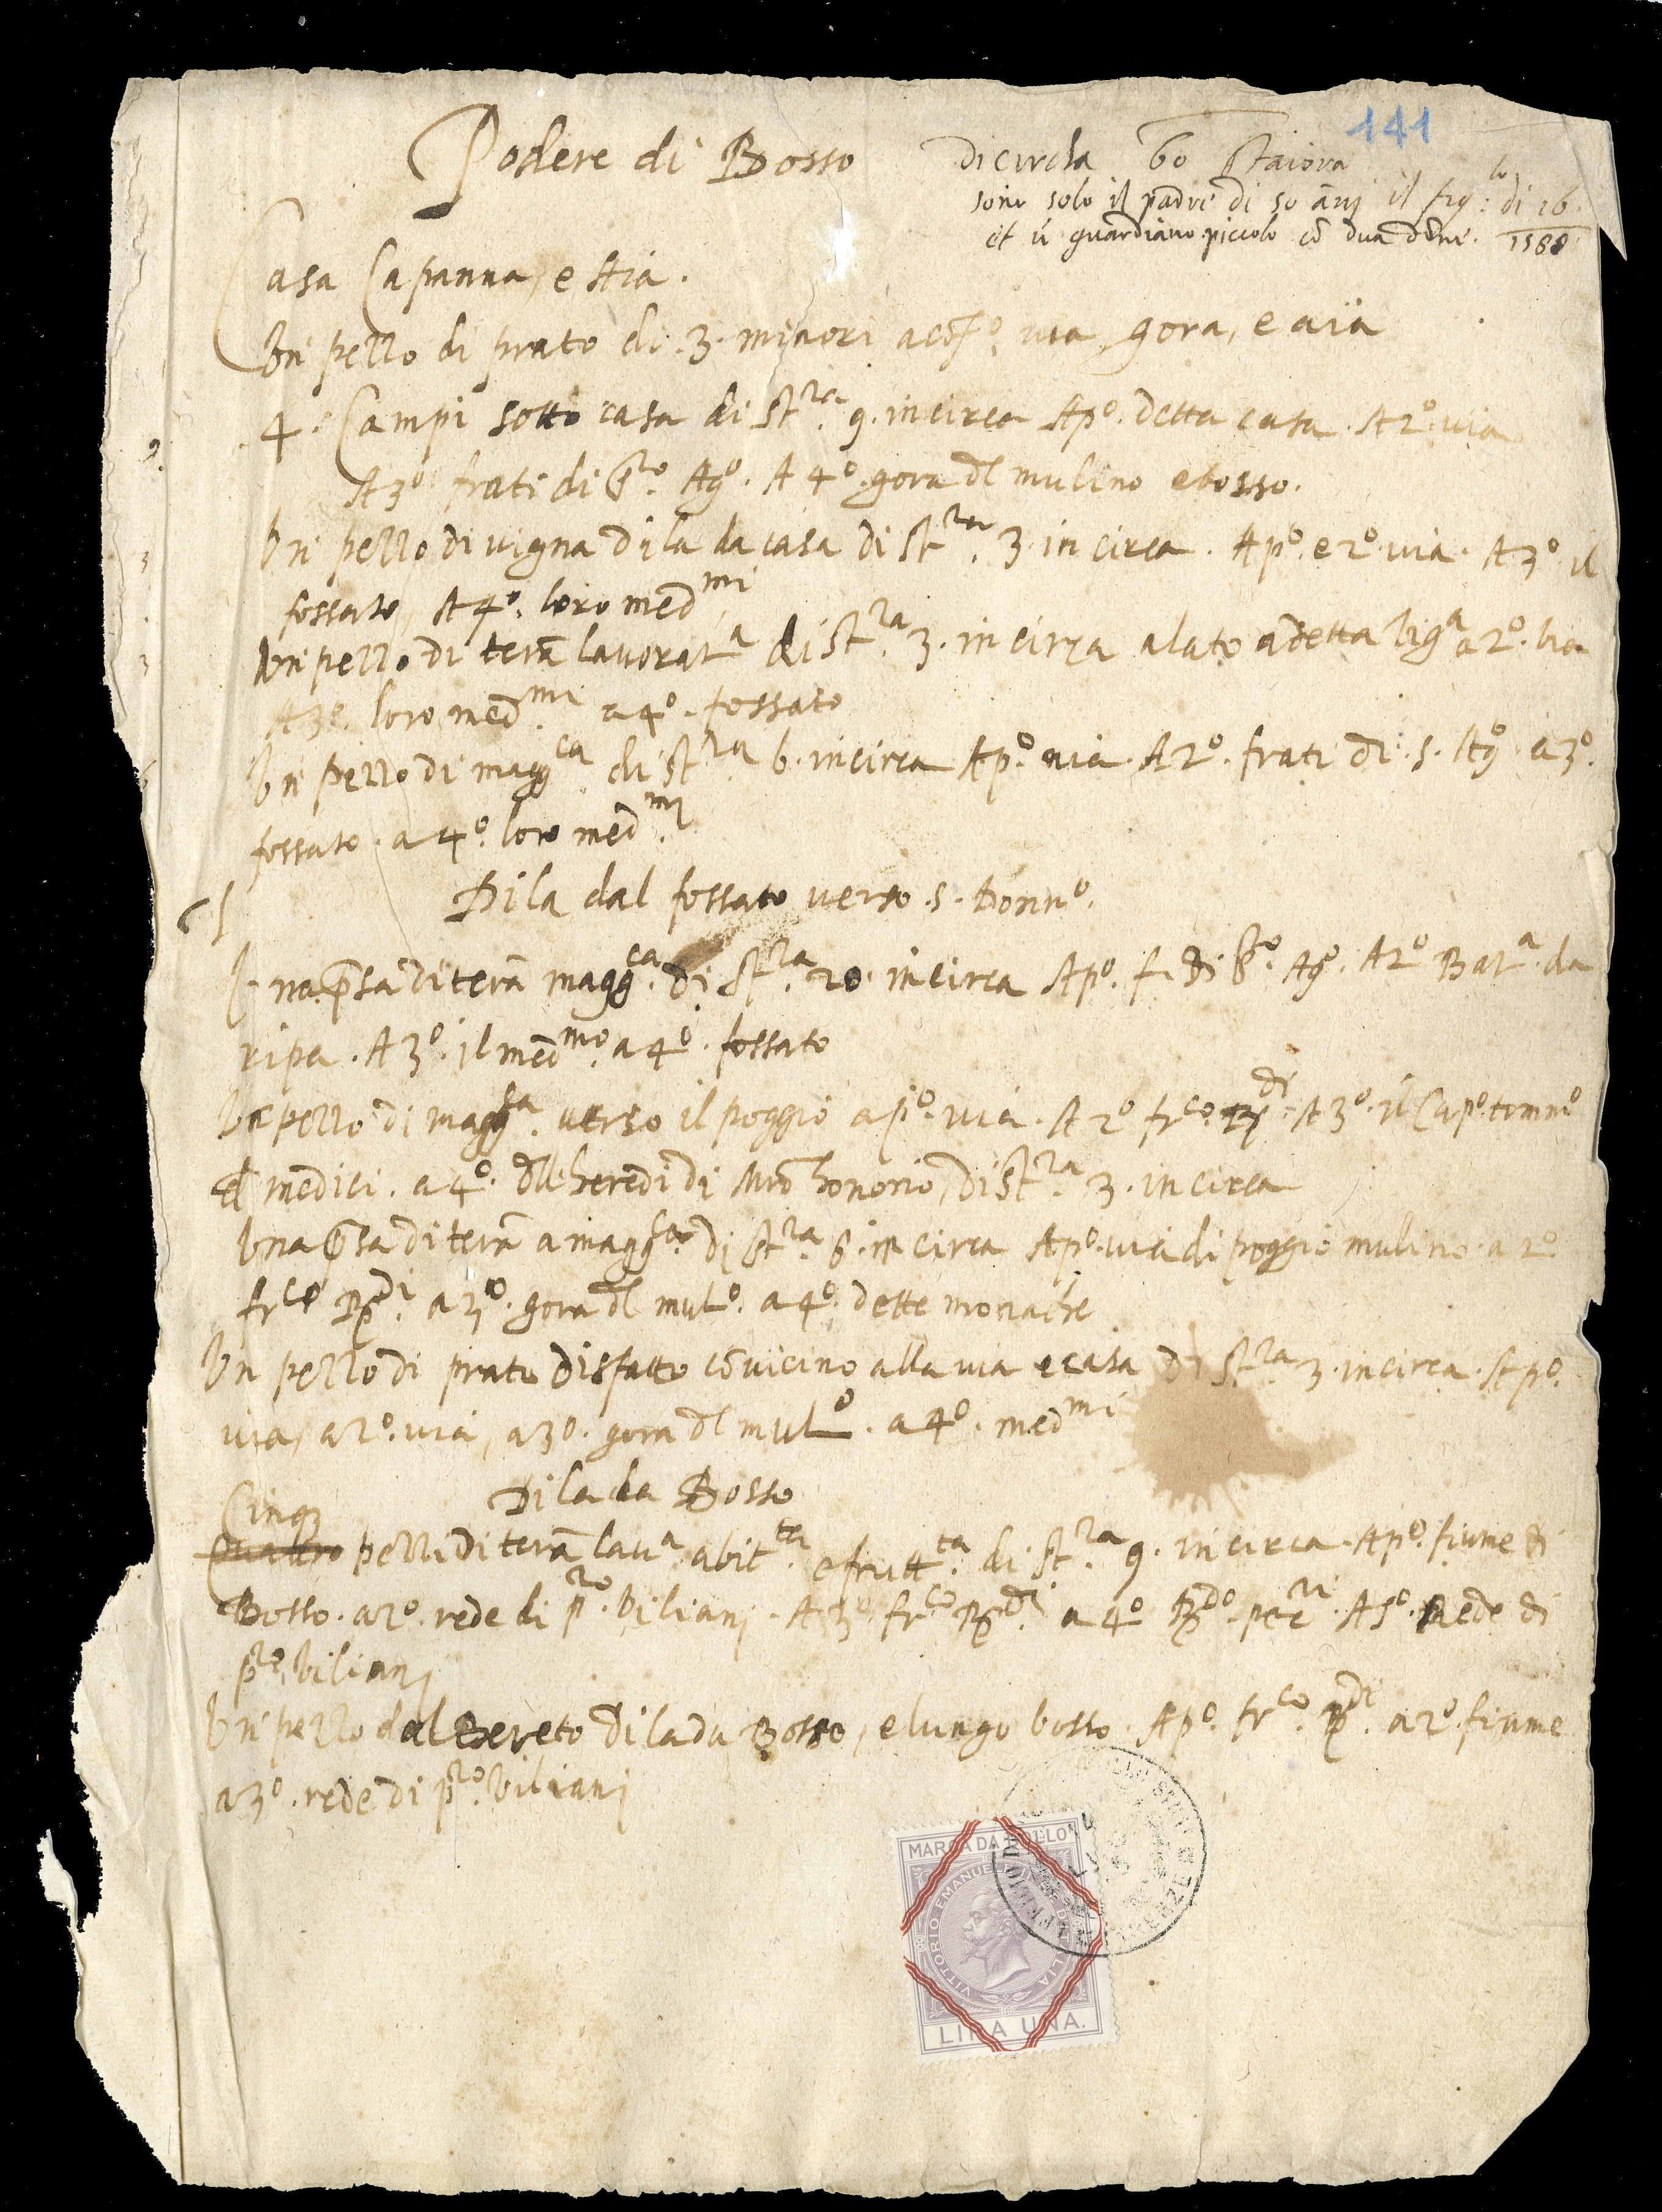 141
Podere di Bosso
di circha 60 staiora
sono solo il padre di 50 anni il fig:lo di 16
et ũ guardiano piccolo cõ dua dõne. 1588
Casa Capanna, e stia.
Un pezzo di prato di .3. minori via gora, e aia
4. Campi sotto casa di St.ra 9. in circa Ap.o detta casa. A 2.o via
A 3.o frati di Ag.o A 4.o gora dl mulino e bosso.
Un pezzo di vigna di la da casa di St.ra 3. in circa. Ap.o e 2.o via. A 3.o il
fossato, A 4.o loro med.mi
Un pezzo di terã lavorat.a di St.ra 3. in circa a lato a detta a 2.o via
A 3.o loro med.mi a 4.o fossato
Un pezzo di magg.ca di St.ra 6. in circa Ap.o via. A 2.o frati di .S. Ag.o a 3.o
fossato. a 4.o loro med.mi
Di la dal fossato verso .S. Donn.o
Una p̃sa di terã magg.ca di St.ra 20. in circa Ap.o f. di Ag.o A 2.o Bat.a da
ripa. A 3.o il med.mo a 4.o fossato
Un pezzo di magg.ca verso il poggio a p.o via. A 2.o fr.co A 3.o il Cap.o tomm.o
d medici. a 4.o dll heredi di honorio, di St.ra 3. in circa
Una p̃sa di terã a magg.ca di St.ra 6. in circa Ap.o via di poggio mulino a 2.o
fr.co a 3.o gora dl mul.o a 4.o dette monache
Un pezzo di prato disfatto cõ vicino alla via e casa di St.ra 3. in circa. Ap.o
via, a 2.o via, a 3.o gora dl mul.o a 4.o med.mi
Di la da Bosso
Cinq
Quattro pezzi di terã lav.a e frutt.ta di St.ra 9. in circa. Ap.o fiume di
Bosso. a 2.o rede di p.ro biliani. A 3.o fr.co a 4.o A 5.o Rede di
p.ro biliani
Un pezzo di la da Bosso, e lungo bosso. Ap.o fr.co a 2.o fiume
a 3.o rede di p.ro biliani
MARCA DA BOLLO
VITTORIO EMANUELE II RE D'ITALIA
LIRA UNA.